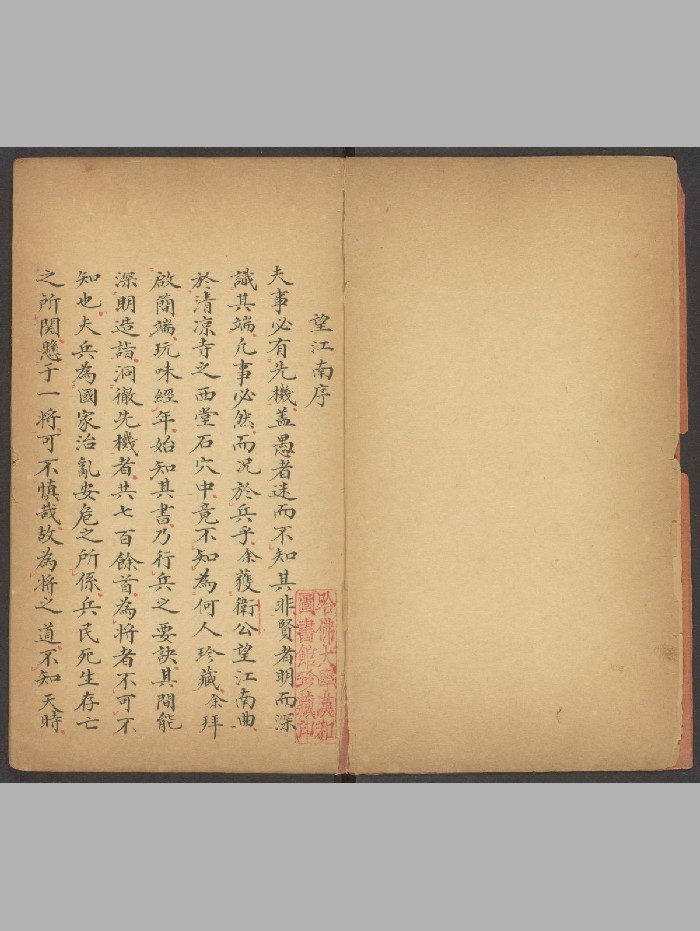 望江南序
夫事必有先機盖愚者迷而不知其非賢者明而深
識其端凡事必然而况於兵乎余獲衛公望江南曲
於清凉寺之西堂石穴中竟不知為何人珍藏余拜
啟簡端玩味經年始知其書乃行兵之要訣其間能
深明造詣洞徹先機者共七百餘首為將者不可不
知也夫兵為國家治亂安危之所係兵民死生存亡
之所関懸于一將可不慎哉故為將之道不知天時
哈佛大學漢和
圖書館珍藏印